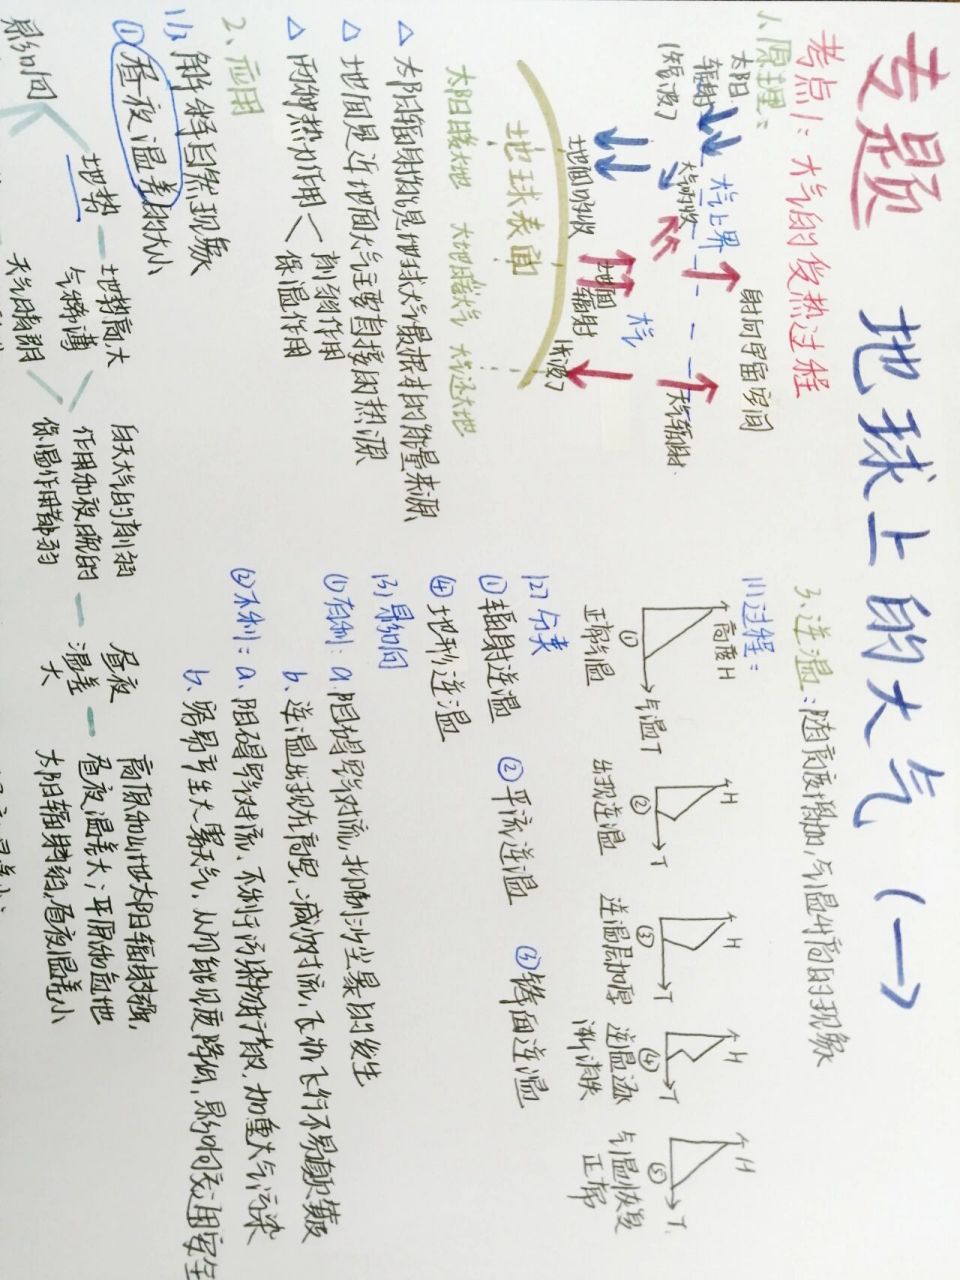 专题 地球上的大气(一)
考点1:大气的受热过程
1、原理:
射向宇宙空间
太阳
辐射
(短波)
大气上界
大气吸收
大气辐射
大气
地面吸收
地面
辐射
(长波)
地球表面
太阳暖大地 大地暖大气 大气还大地
△ 太阳辐射能是地球大气最根本的能量来源
△ 地面是近地面大气主要直接的热源
△ 两御热力作用<
削弱作用
保温作用
2、应用
(1)解释自然现象
①昼夜温差的大小
影响
地势 — 地势高大
气稀薄
天气晴朗
白天大气的削弱
作用和夜晚的
保温作用都弱
昼夜
温差
大
高原和山地太阳辐射强,
昼夜温差大;平原和盆地
太阳辐射弱,昼夜温差小
3、逆温:随高度增加,气温升高的现象
(1)过程:
高度H
气温T
①
正常气温
H
T
②
出现逆温
H
T
③
逆温层加厚
H
T
④
逆温逐
渐消失
H
T
⑤
气温恢复
正常
(2)分类
①辐射逆温 ②平流逆温 ③锋面逆温
④地形逆温
(3)影响
①有利:a.阻碍对流,抑制沙尘暴的发生
b.逆温出现在高空,减少对流,飞机飞行不易颠簸
②不利:a.阻碍对流,不利于污染物扩散,加重大气污染
b.容易产生大雾天气,从而能见度降低,影响交通安全